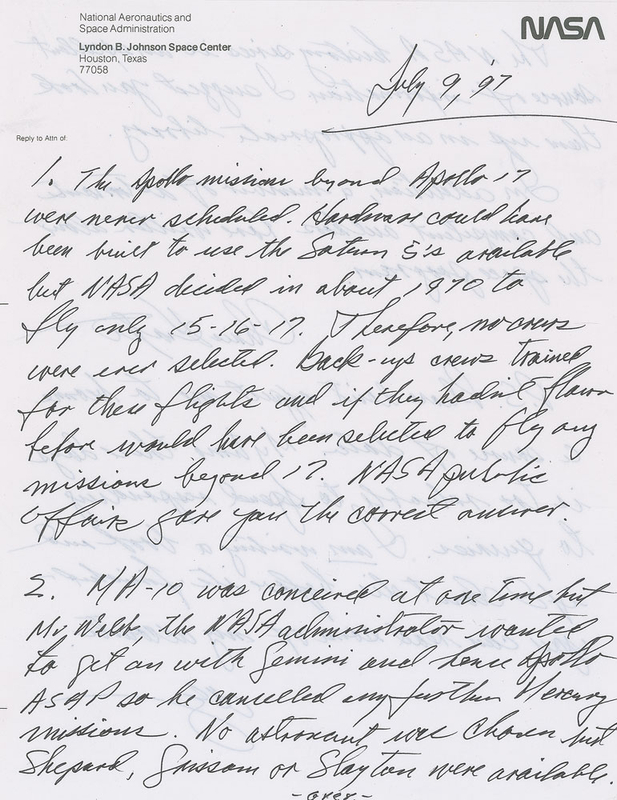 National Aeronautics and
Space Administration
Lyndon B. Johnson Space Center
Houston, Texas
77058
NASA
July 9, '97
Reply to Attn of:
1. The Apollo missions beyond Apollo 17
were never scheduled. Hardware could have
been built to use the Saturn 5's available
but NASA decided in about 1970 to
fly only 15-16-17. Therefore, no crews
were ever selected. Back-up crews trained
for these flights and if they hadn't flown
before would have been selected to fly any
missions beyond 17. NASA public
affairs gave you the correct answer.
2. MA-10 was conceived at one time but
Mr. Webb, the NASA administrator wanted
to get on with Gemini and hence Apollo
ASAP so he cancelled any further Mercury
missions. No astronaut was chosen but
Shepard, Grissom or Slayton were available.
-over-